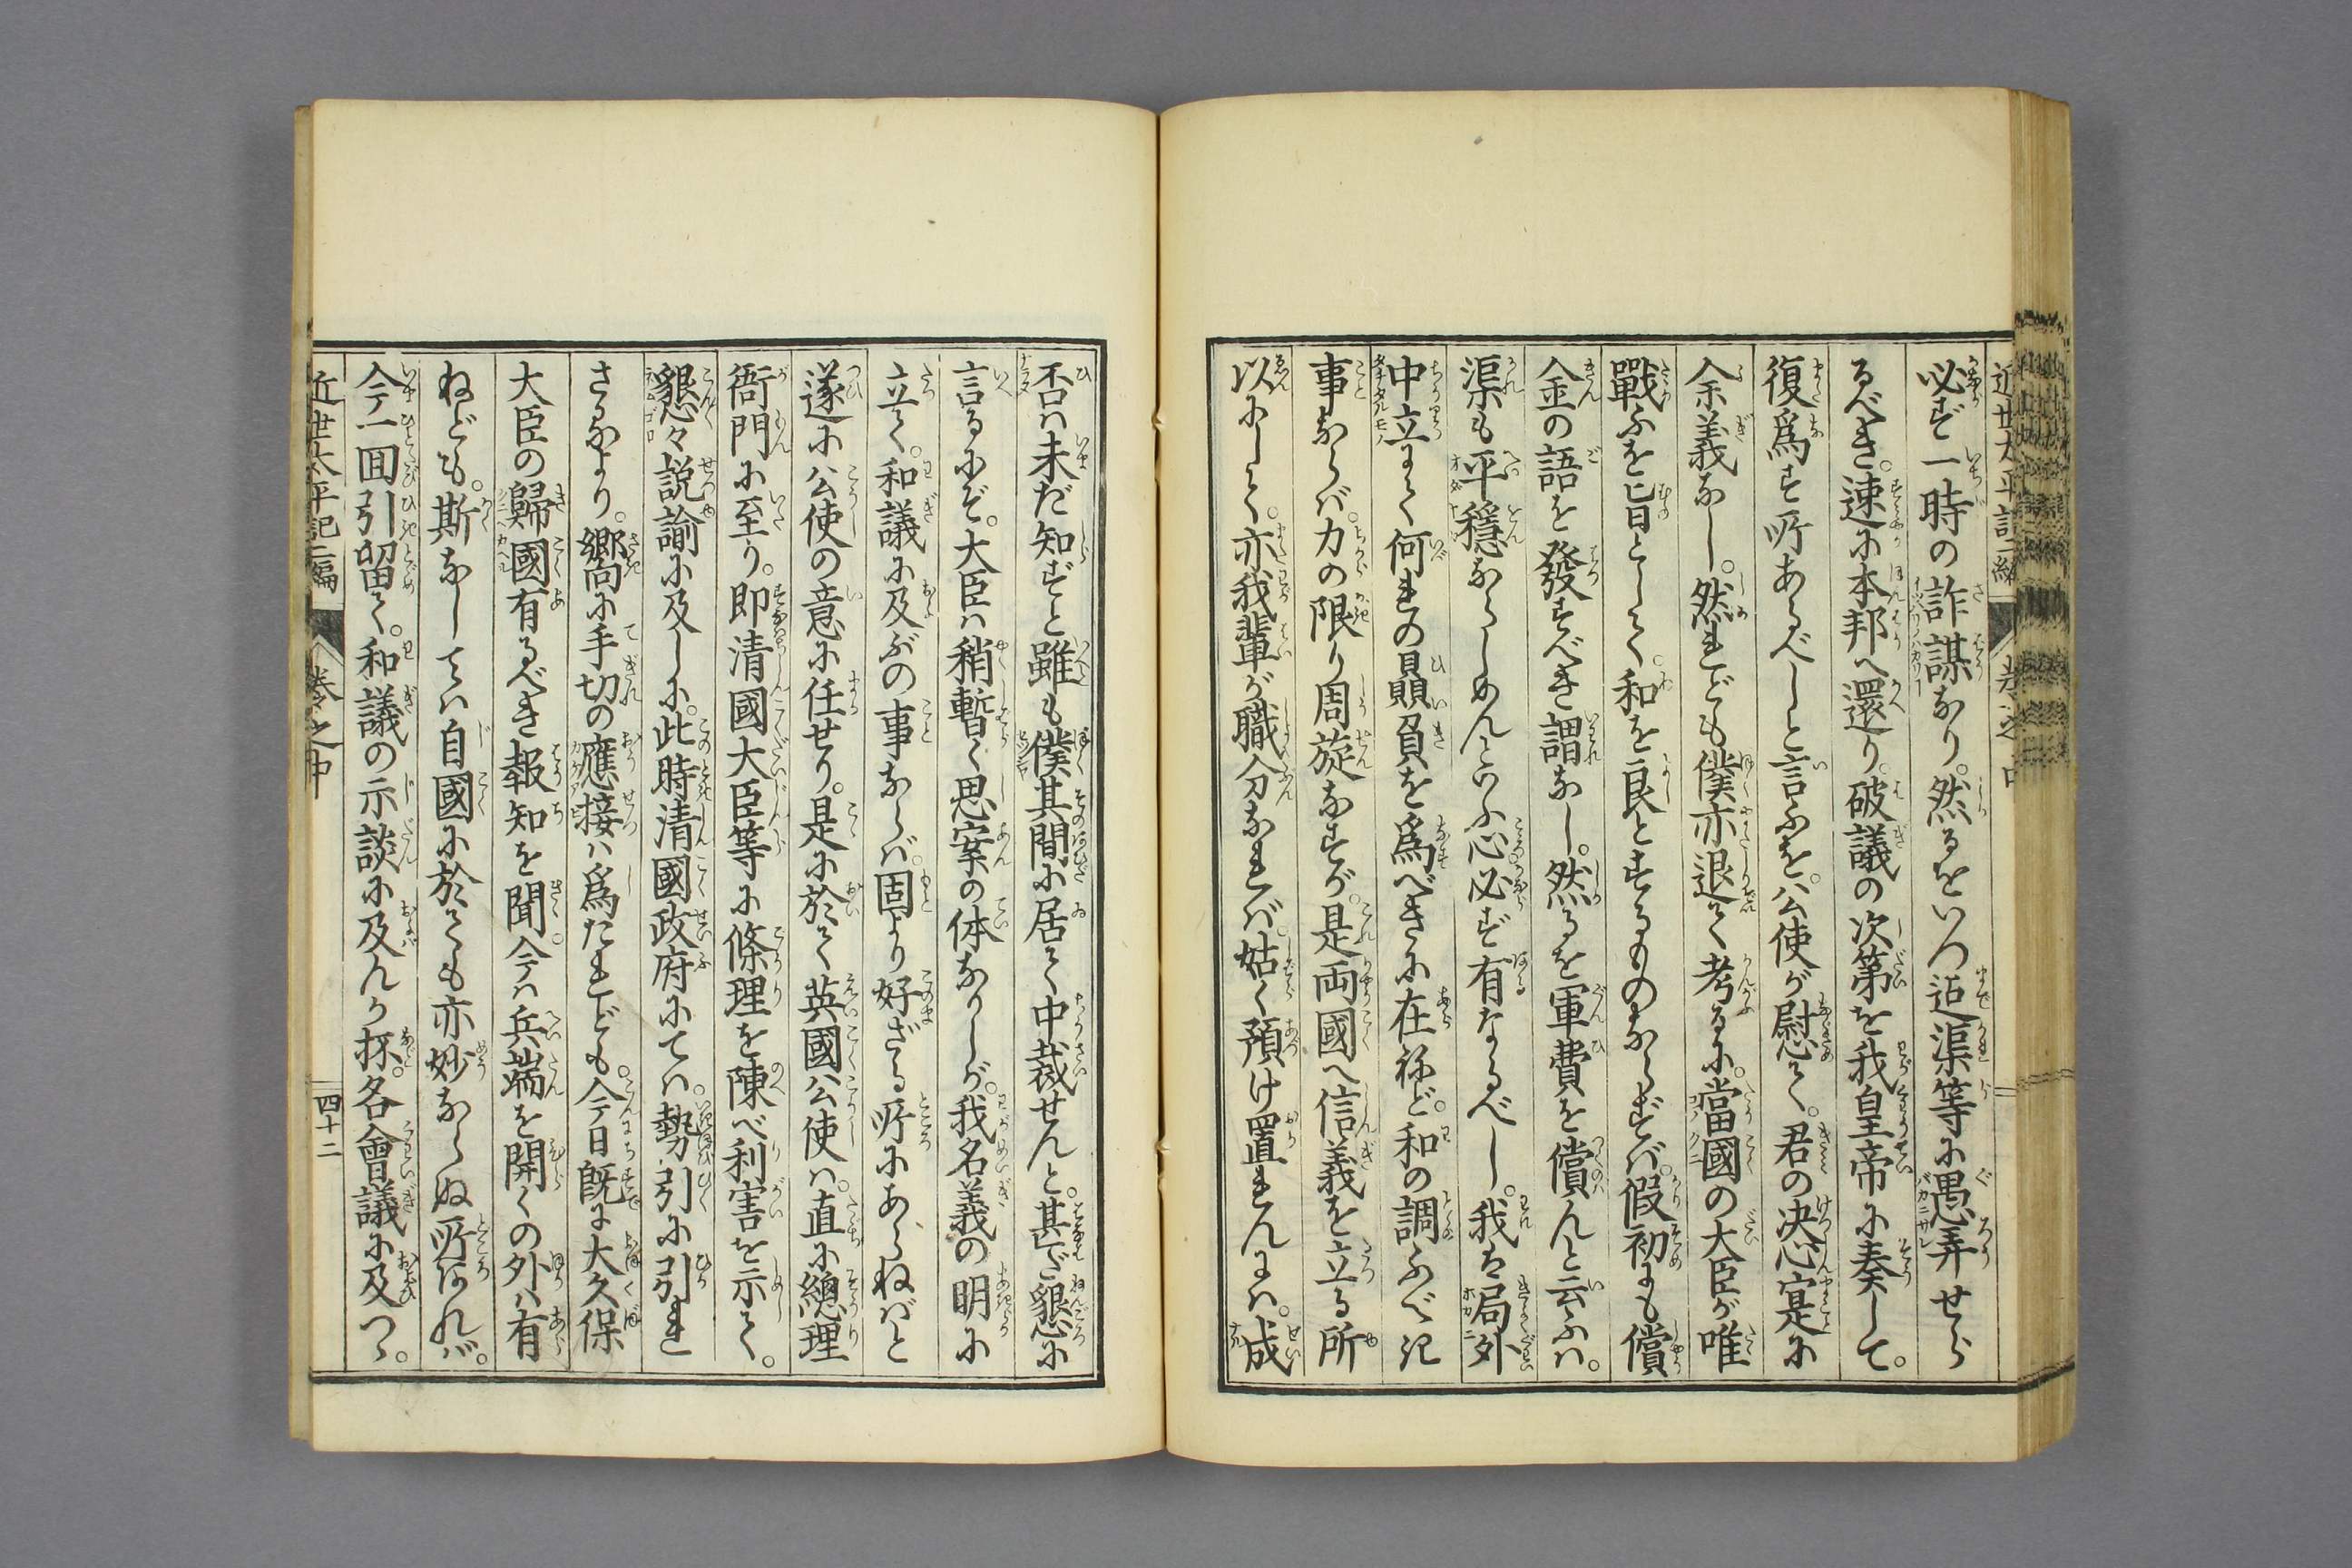 必ず一時の詐謀なり。然るをいつ迄渠等に愚弄せら
るべき。速に本邦へ還り。破議の次第を我皇帝に奏して。
復爲す所あるべしと言ふを。公使が慰て。君の决心寔に
余義なし。然れども僕亦退て考るに。當國の大臣が唯
戰ふを旨として。和を良とするものならずば。假初にも償
金の語を發すべき謂なし。然るを軍費を償んと云ふは。
渠も平穏ならしめんといふ心必ず有なるべし。我は局外
中立にて何れの贔負を爲べきに在ねど。和の調ふべき
事ならバ。力の限り周旋なすが。是両國へ信義を立る所
以にして。亦我輩が職分なれば。姑く預け置れんには。成
否ハ未だ知ずと雖も僕其間に居て中裁せんと。甚だ懇に
言るにぞ。大臣ハ稍暫く思案の体なりしが。我名義の明に
立て。和議に及ぶの事ならば。固より好ざる所にあらねばと
遂に公使の意に任せり。是に於て英國公使ハ。直に總理
衙門に至り。即清國大臣等に條理を陳べ利害を示して。
懇々説諭に及しに。此時清國政府にてハ。勢引に引れ
さるより。嚮に手切の應接ハ爲たれども。今日既に大久保
大臣の歸國有るべき報知を聞。今ハ兵端を開くの外ハ有
ねども。斯なしてハ自國に於ても亦妙ならぬ所あれバ。
今一回引留て。和議の示談に及んか抔。各會議に及つゝ。
近世太平記二編 卷之中 四十二